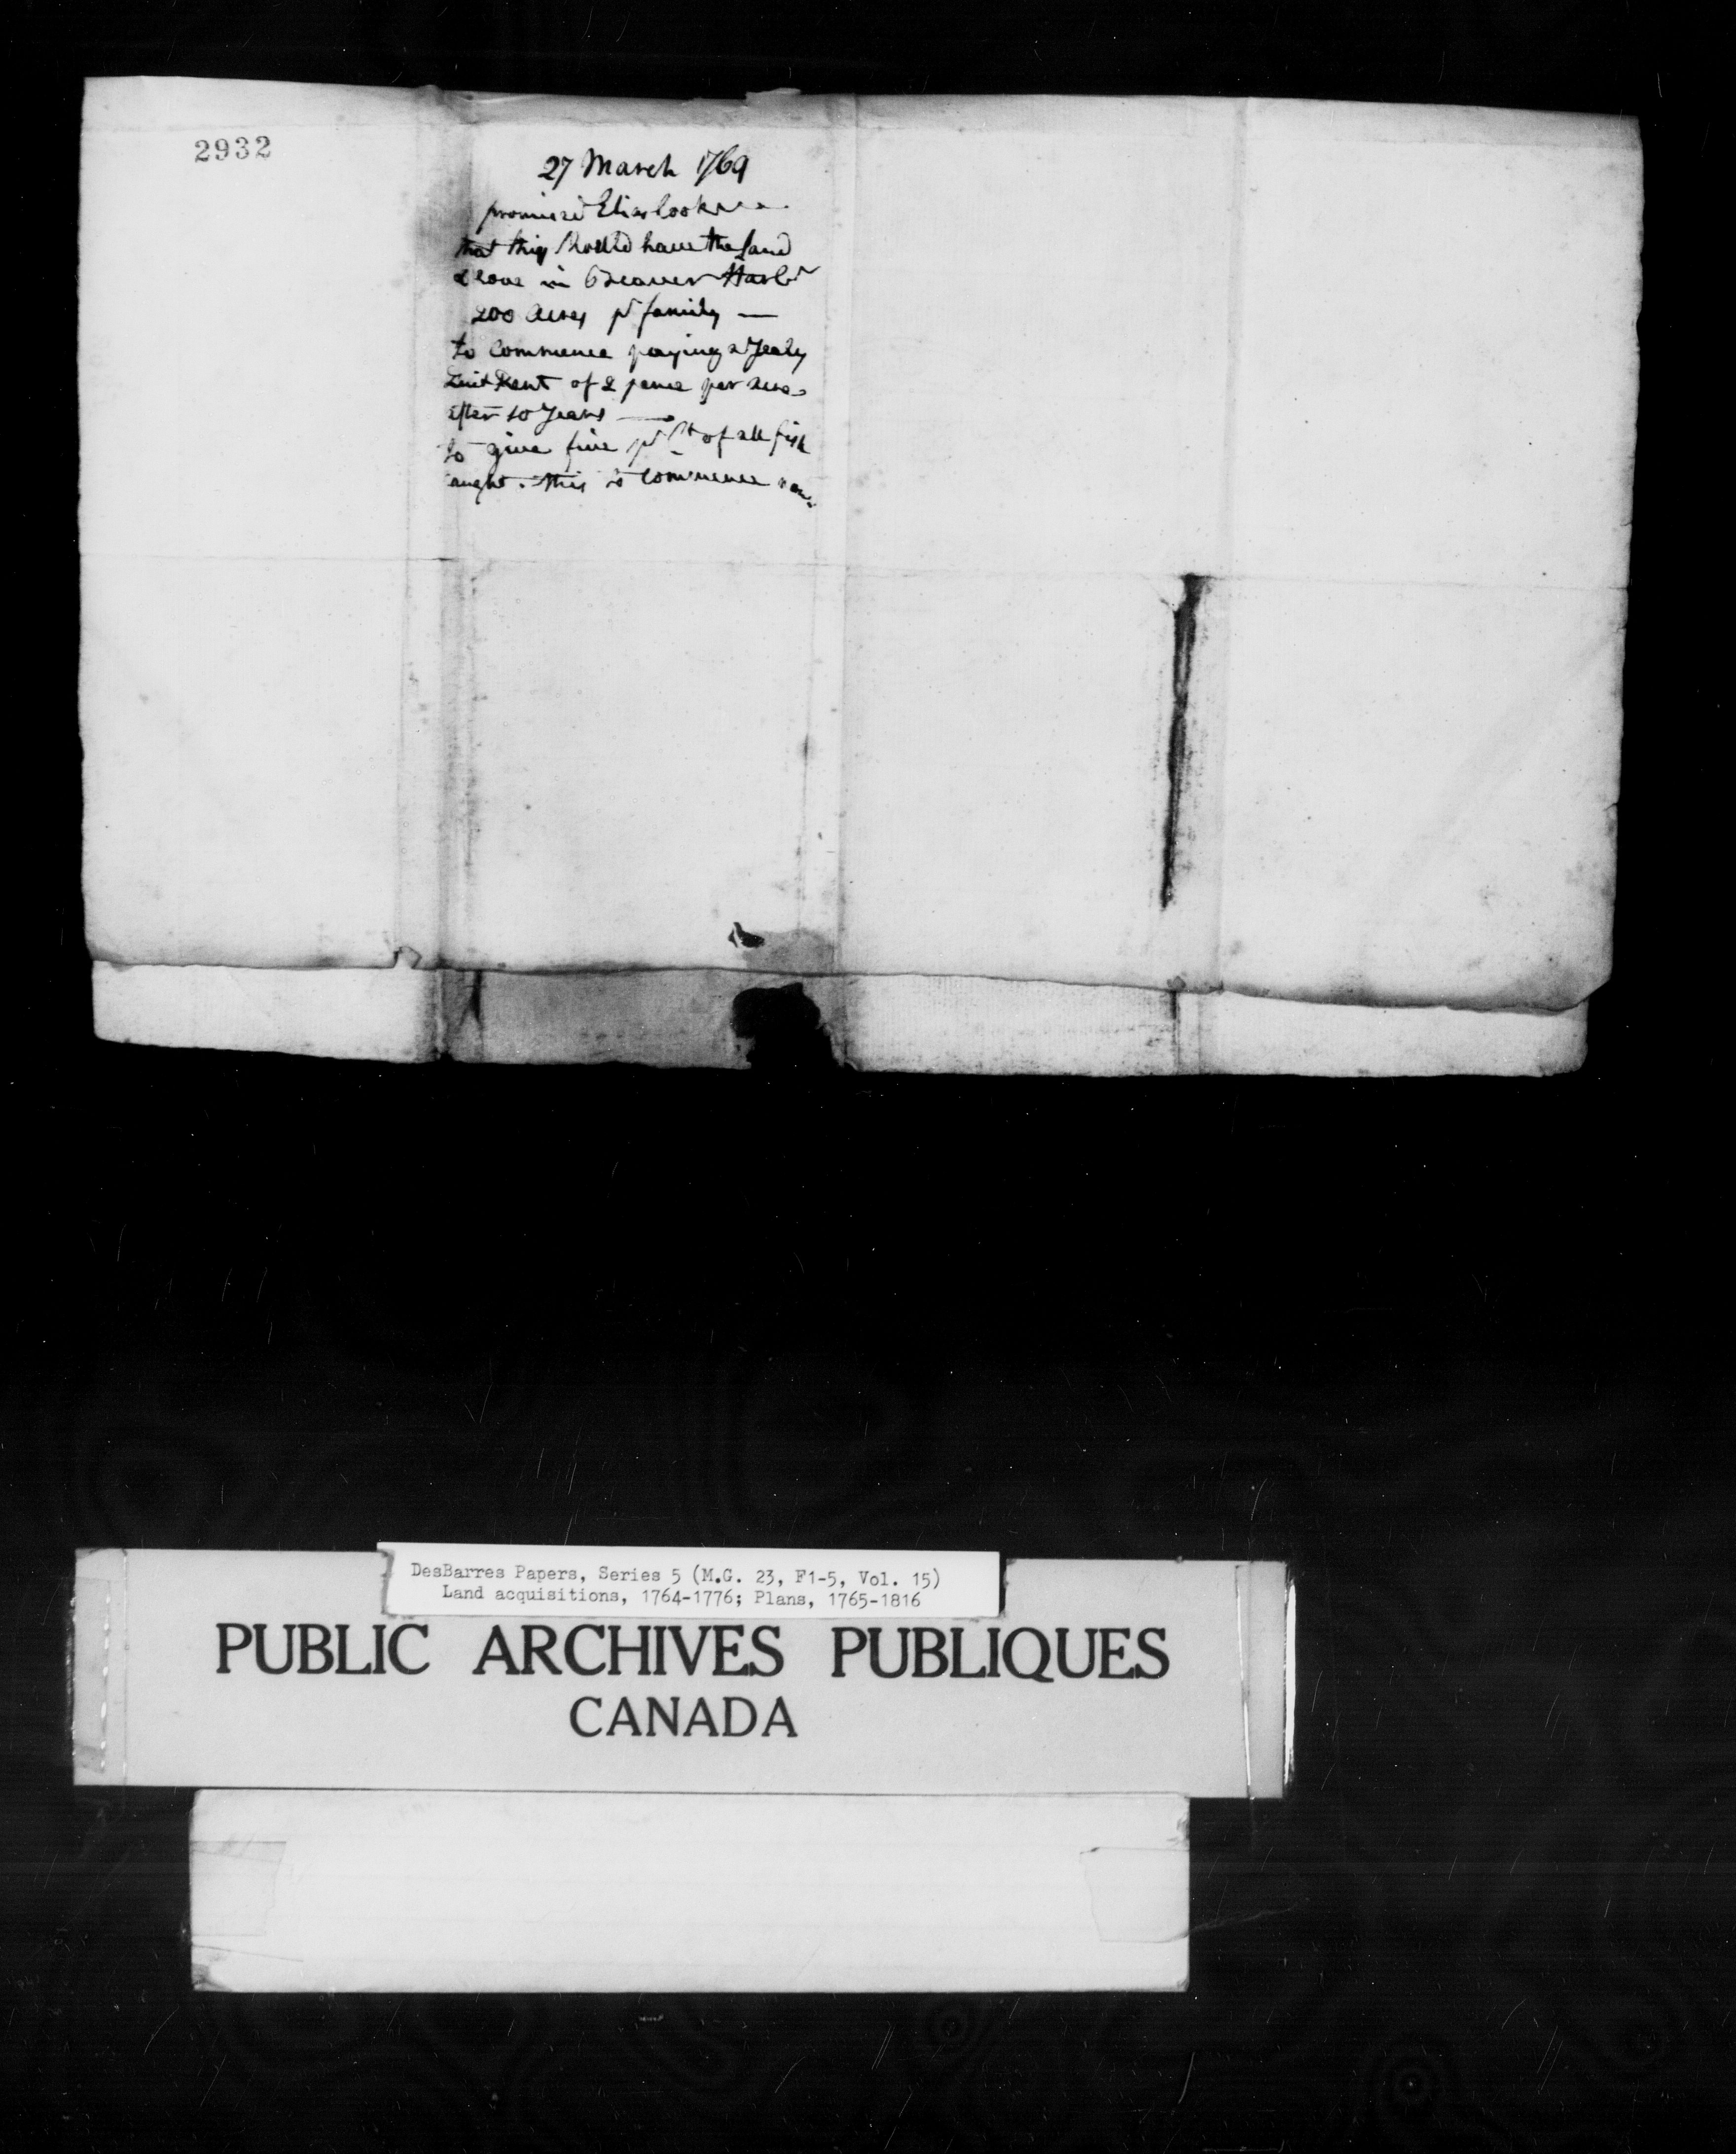 2932
27 March 1769
promised Elias Cook
that they should have the Land
& Cove in Beaver Harbr
200 Acres pr family —
to Commence paying a Yealy
Quit Rent of 2 pence per acre
after 10 Years —
to give five pr Ct of all fish
Caught. this to Commence now
DesBarres Papers, Series 5 (M.G. 23, F1-5, Vol. 15)
Land acquisitions, 1764-1776; Plans, 1765-1816
PUBLIC ARCHIVES PUBLIQUES
CANADA